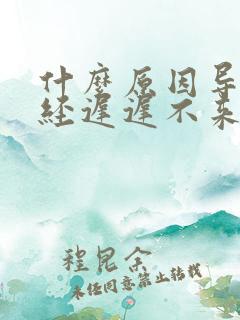 什麼原因导
经遲遲不来
程昆余
未经同意禁止转载